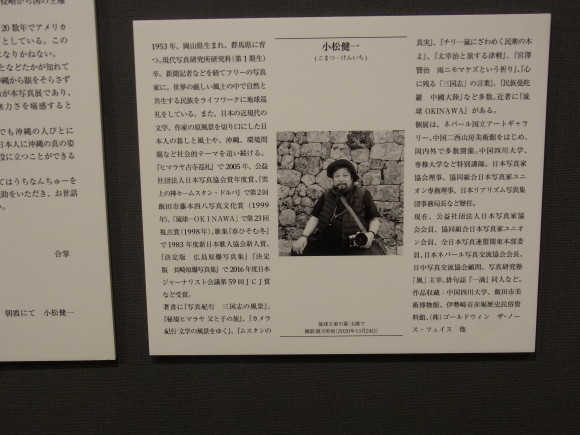 20数年でアメリカ
としている。この
になりかねない。
となどたかが知れて
縄から眼をそらさず
が本写真展であり、
無力さを痛感すると
でも沖縄の人びとに
日本人に沖縄の真の姿
役に立つことができる
てはうちなんちゅーを
助をいただき、お世話
合掌
朝霞にて 小松健一
1953年、岡山県生まれ、群馬県に育
つ。現代写真研究所研究科(第1期生)
卒。新聞記者などを経てフリーの写真
家に。世界の厳しい風土の中で自然と
共生する民族をライフワークに地球巡
礼をしている。また、日本の近現代の
文学、作家の原風景を切り口にした日
本人の暮しと風土や、沖縄、環境問
題など社会的テーマを追い続ける。
『ヒマラヤ古寺巡礼』で2005年、公益
社団法人日本写真協会賞年度賞、『雲
上の神々―ムスタン・ドルパ』で第2回
飯田市藤本四八写真文化賞(1999
年)、『琉球―OKINAWA』で第23回
視点賞(1998年)、歌集『春ひそむ冬』
で1983年度新日本歌人協会新人賞、
『決定版 広島原爆写真集』『決定
版 長崎原爆写真集』で2016年度日本
ジャーナリスト会議第59回JCJ賞
など受賞。
著書に『写真紀行 三国志の風景』、
『秘境ヒマラヤ 父と子の旅』、『カメラ
紀行 文学の風景をゆく』、『ムスタンの
小松健一
(こまつ・けんいち)
琉球王家の墓・玉陵で
撮影:銀川栄南(2020年11月24日)
真実』、『チリー嵐にざわめく民衆の木
よ』、『太宰治と旅する津軽』、『宮澤
賢治 雨ニモマケズという祈り』、『心
に残る「三国志」の言葉』、『民族曼陀
羅 中國大陸』など多数。近著に『琉
球 OKINAWA』がある。
個展は、ネパール国立アートギャラ
リー、中国二西山房美術館をはじめ、
国内外で多数開催。中国四川大学、
専修大学など特別講師。日本写真家
協会理事、協同組合日本写真家ユニ
オン専務理事、日本リアリズム写真集
団事務局長など歴任。
現在、公益社団法人日本写真家協
会会員、協同組合日本写真家ユニオ
ン会員、全日本写真連盟関東本部委
員、日本ネパール写真交流協会会長、
日中写真交流協会顧問、写真研究塾
「風」主宰、俳句誌「一滴」同人など。
作品収蔵：中国四川大学、飯田市美
術博物館、伊勢崎市赤堀歴史民俗資
料館、(株)ゴールドウイン ザ・ノー
ス・フェイス 他